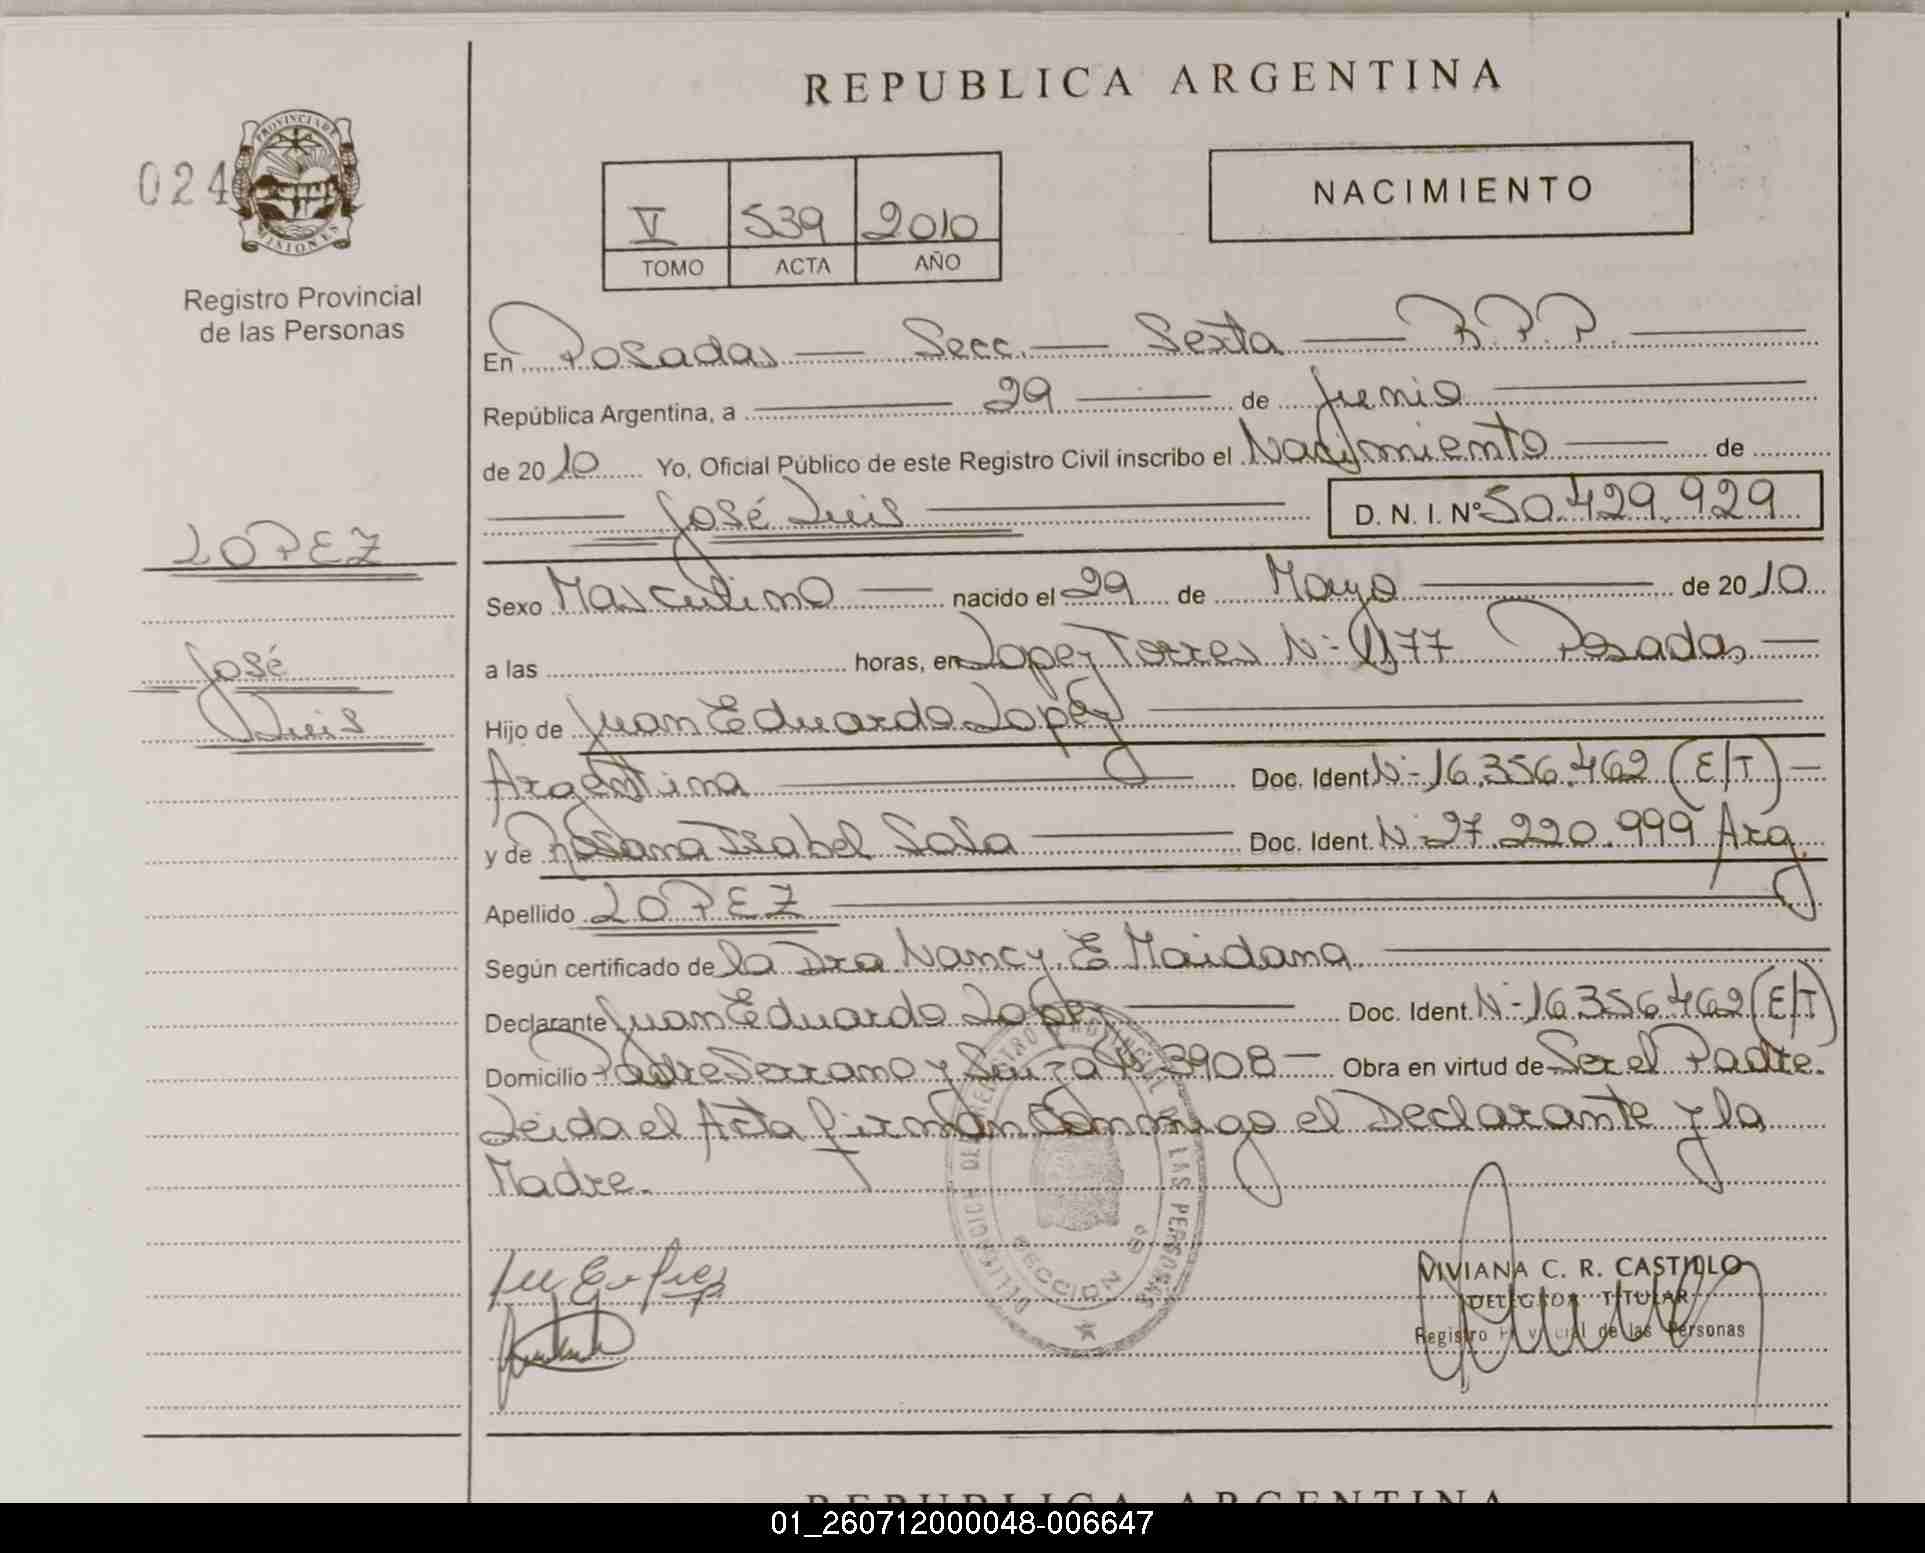 REPUBLICA ARGENTINA
024
PROVINCIA DE MISIONES
Registro Provincial
de las Personas
V 539 2010
TOMO ACTA AÑO
NACIMIENTO
En Posadas — Secc. — Sexta — R.P.P.
República Argentina, a 29 de Junio
de 2010 Yo, Oficial Público de este Registro Civil inscribo el Nacimiento de
José Luis D. N. I. Nº 50.429.929
LOPEZ
José
Luis
Sexo Masculino nacido el 29 de Mayo de 2010
a las horas, en Lopez Torres Nº 1177 Posadas
Hijo de Juan Eduardo Lopez
Argentina Doc. Ident. Nº 16.356.462 (E/T)
y de Rosana Isabel Sosa Doc. Ident. Nº 27.220.999 Arg.
Apellido LOPEZ
Según certificado de la Dra Nancy E Maidana
Declarante Juan Eduardo Lopez Doc. Ident. Nº 16356462 (E/T)
Domicilio Padre Serrano y Suiza Nº 3908 — Obra en virtud de Ser el Padre.
Leida el Acta firman Conmigo el Declarante y la
Madre.
DELEGACION DEL REGISTRO PROVINCIAL DE LAS PERSONAS
SECCION 6º
VIVIANA C. R. CASTILLO
DELEGADA TITULAR
Registro Provincial de las Personas
REPUBLICA ARGENTINA
01_260712000048-006647